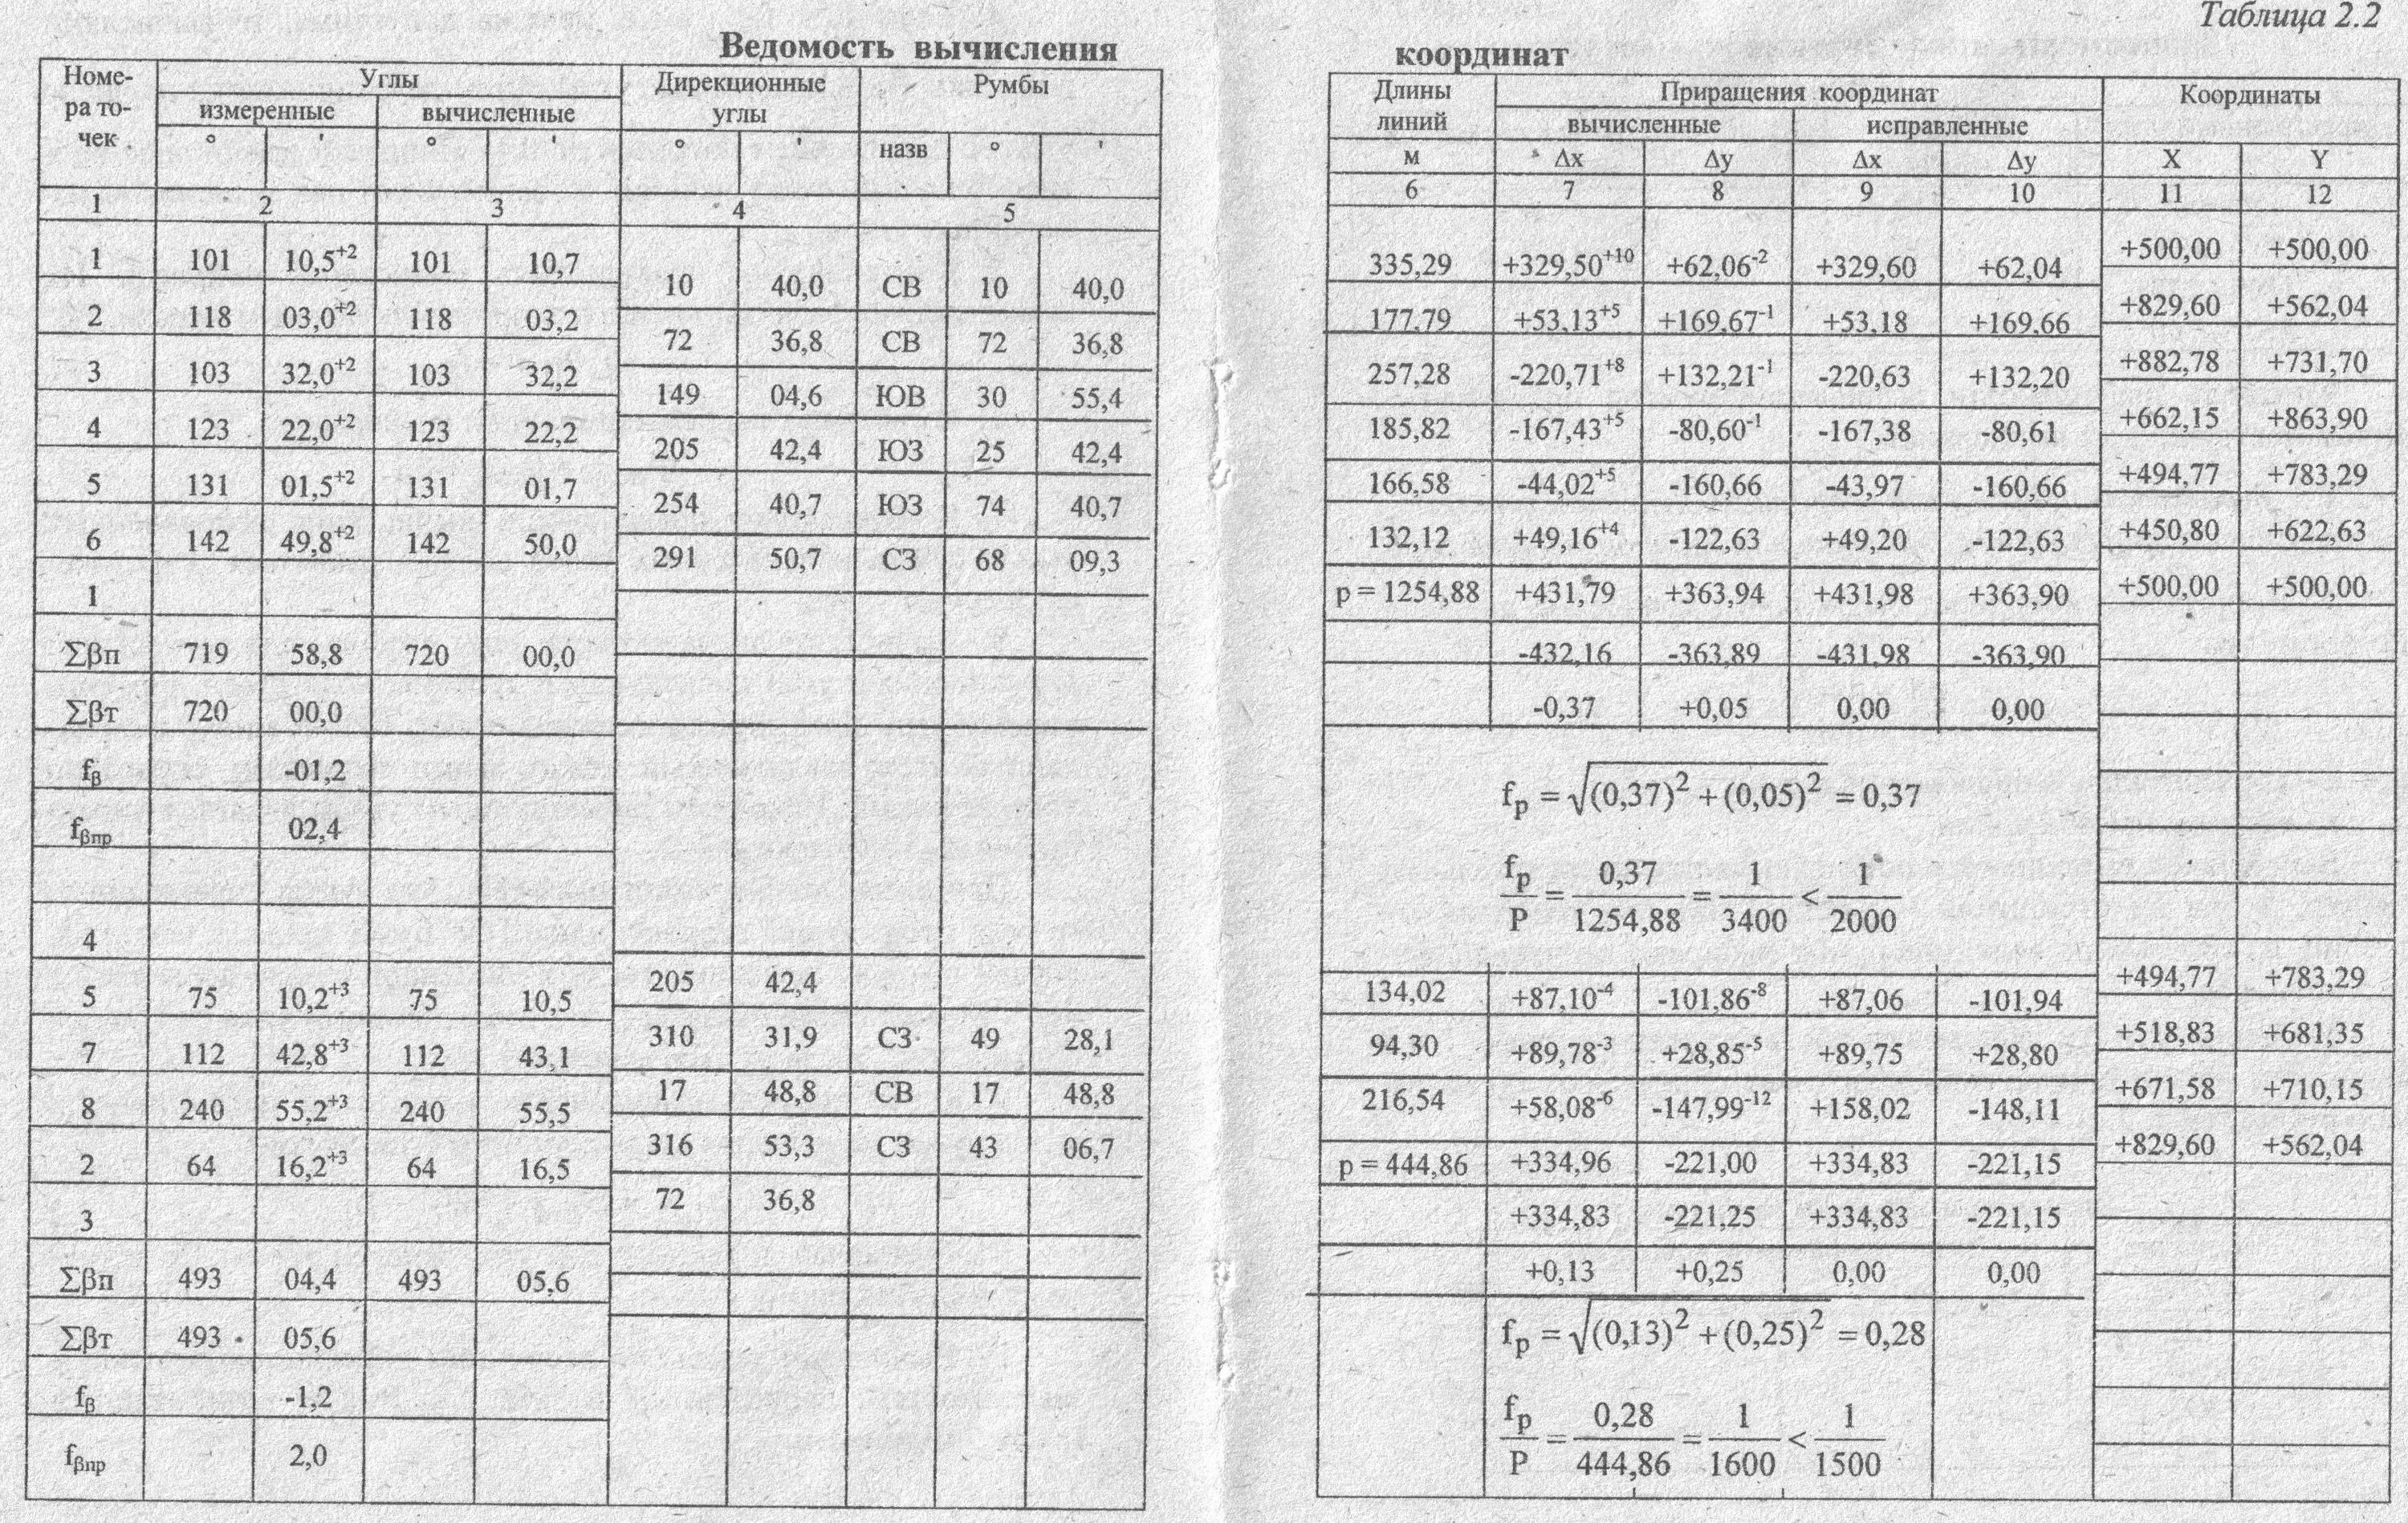 Таблица 2.2
Ведомость вычисления координат
Номе-ра то-чек | Углы | Дирекционные углы | Румбы | Длины линий | Приращения координат | Координаты
измеренные | вычисленные | вычисленные | исправленные
° | ' | ° | ' | ° | ' | назв | ° | ' | м | Δx | Δy | Δx | Δy | X | Y
1 | 2 | 3 | 4 | 5 | 6 | 7 | 8 | 9 | 10 | 11 | 12
1 | 101 | 10,5⁺² | 101 | 10,7 | +500,00 | +500,00
10 | 40,0 | СВ | 10 | 40,0 | 335,29 | +329,50⁺¹⁰ | +62,06⁻² | +329,60 | +62,04
2 | 118 | 03,0⁺² | 118 | 03,2 | +829,60 | +562,04
72 | 36,8 | СВ | 72 | 36,8 | 177,79 | +53,13⁺⁵ | +169,67⁻¹ | +53,18 | +169,66
3 | 103 | 32,0⁺² | 103 | 32,2 | +882,78 | +731,70
149 | 04,6 | ЮВ | 30 | 55,4 | 257,28 | -220,71⁺⁸ | +132,21⁻¹ | -220,63 | +132,20
4 | 123 | 22,0⁺² | 123 | 22,2 | +662,15 | +863,90
205 | 42,4 | ЮЗ | 25 | 42,4 | 185,82 | -167,43⁺⁵ | -80,60⁻¹ | -167,38 | -80,61
5 | 131 | 01,5⁺² | 131 | 01,7 | +494,77 | +783,29
254 | 40,7 | ЮЗ | 74 | 40,7 | 166,58 | -44,02⁺⁵ | -160,66 | -43,97 | -160,66
6 | 142 | 49,8⁺² | 142 | 50,0 | +450,80 | +622,63
291 | 50,7 | СЗ | 68 | 09,3 | 132,12 | +49,16⁺⁴ | -122,63 | +49,20 | -122,63
1 | +500,00 | +500,00
p = 1254,88 | +431,79 | +363,94 | +431,98 | +363,90
Σβп | 719 | 58,8 | 720 | 00,0 | -432,16 | -363,89 | -431,98 | -363,90
Σβт | 720 | 00,0 | -0,37 | +0,05 | 0,00 | 0,00
fβ | -01,2
fp = √(0,37)² + (0,05)² = 0,37
fβпр | 02,4
fp/P = 0,37/1254,88 = 1/3400 < 1/2000
4
205 | 42,4
5 | 75 | 10,2⁺³ | 75 | 10,5 | +494,77 | +783,29
310 | 31,9 | СЗ | 49 | 28,1 | 134,02 | +87,10⁻⁴ | -101,86⁻⁸ | +87,06 | -101,94
7 | 112 | 42,8⁺³ | 112 | 43,1 | +518,83 | +681,35
17 | 48,8 | СВ | 17 | 48,8 | 94,30 | +89,78⁻³ | +28,85⁻⁵ | +89,75 | +28,80
8 | 240 | 55,2⁺³ | 240 | 55,5 | +671,58 | +710,15
316 | 53,3 | СЗ | 43 | 06,7 | 216,54 | +58,08⁻⁶ | -147,99⁻¹² | +158,02 | -148,11
2 | 64 | 16,2⁺³ | 64 | 16,5 | +829,60 | +562,04
72 | 36,8 | p = 444,86 | +334,96 | -221,00 | +334,83 | -221,15
3 | +334,83 | -221,25 | +334,83 | -221,15
Σβп | 493 | 04,4 | 493 | 05,6 | +0,13 | +0,25 | 0,00 | 0,00
Σβт | 493 | 05,6
fp = √(0,13)² + (0,25)² = 0,28
fβ | -1,2
fβпр | 2,0
fp/P = 0,28/444,86 = 1/1600 < 1/1500